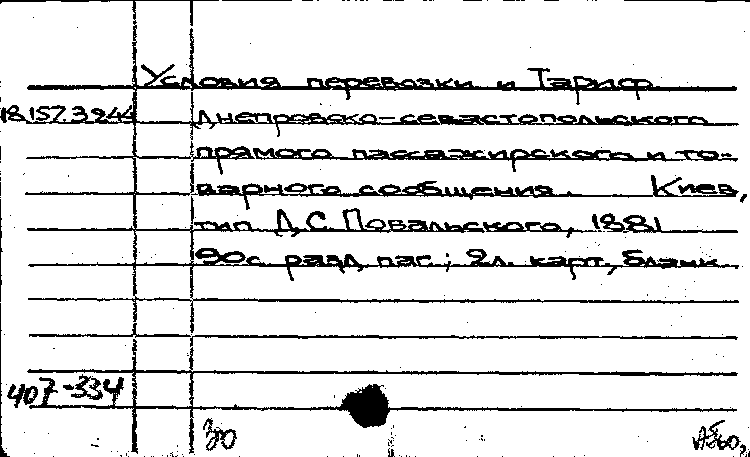 Условия перевозки и Тариф
18.157.3.244 Днепровско-севастопольского
прямого пассажирского и то-
варного сообщения. Киев,
тип. Д.С. Повальского, 1881
90с. разд. паг.; 2л. карт., бланк
407-334
30